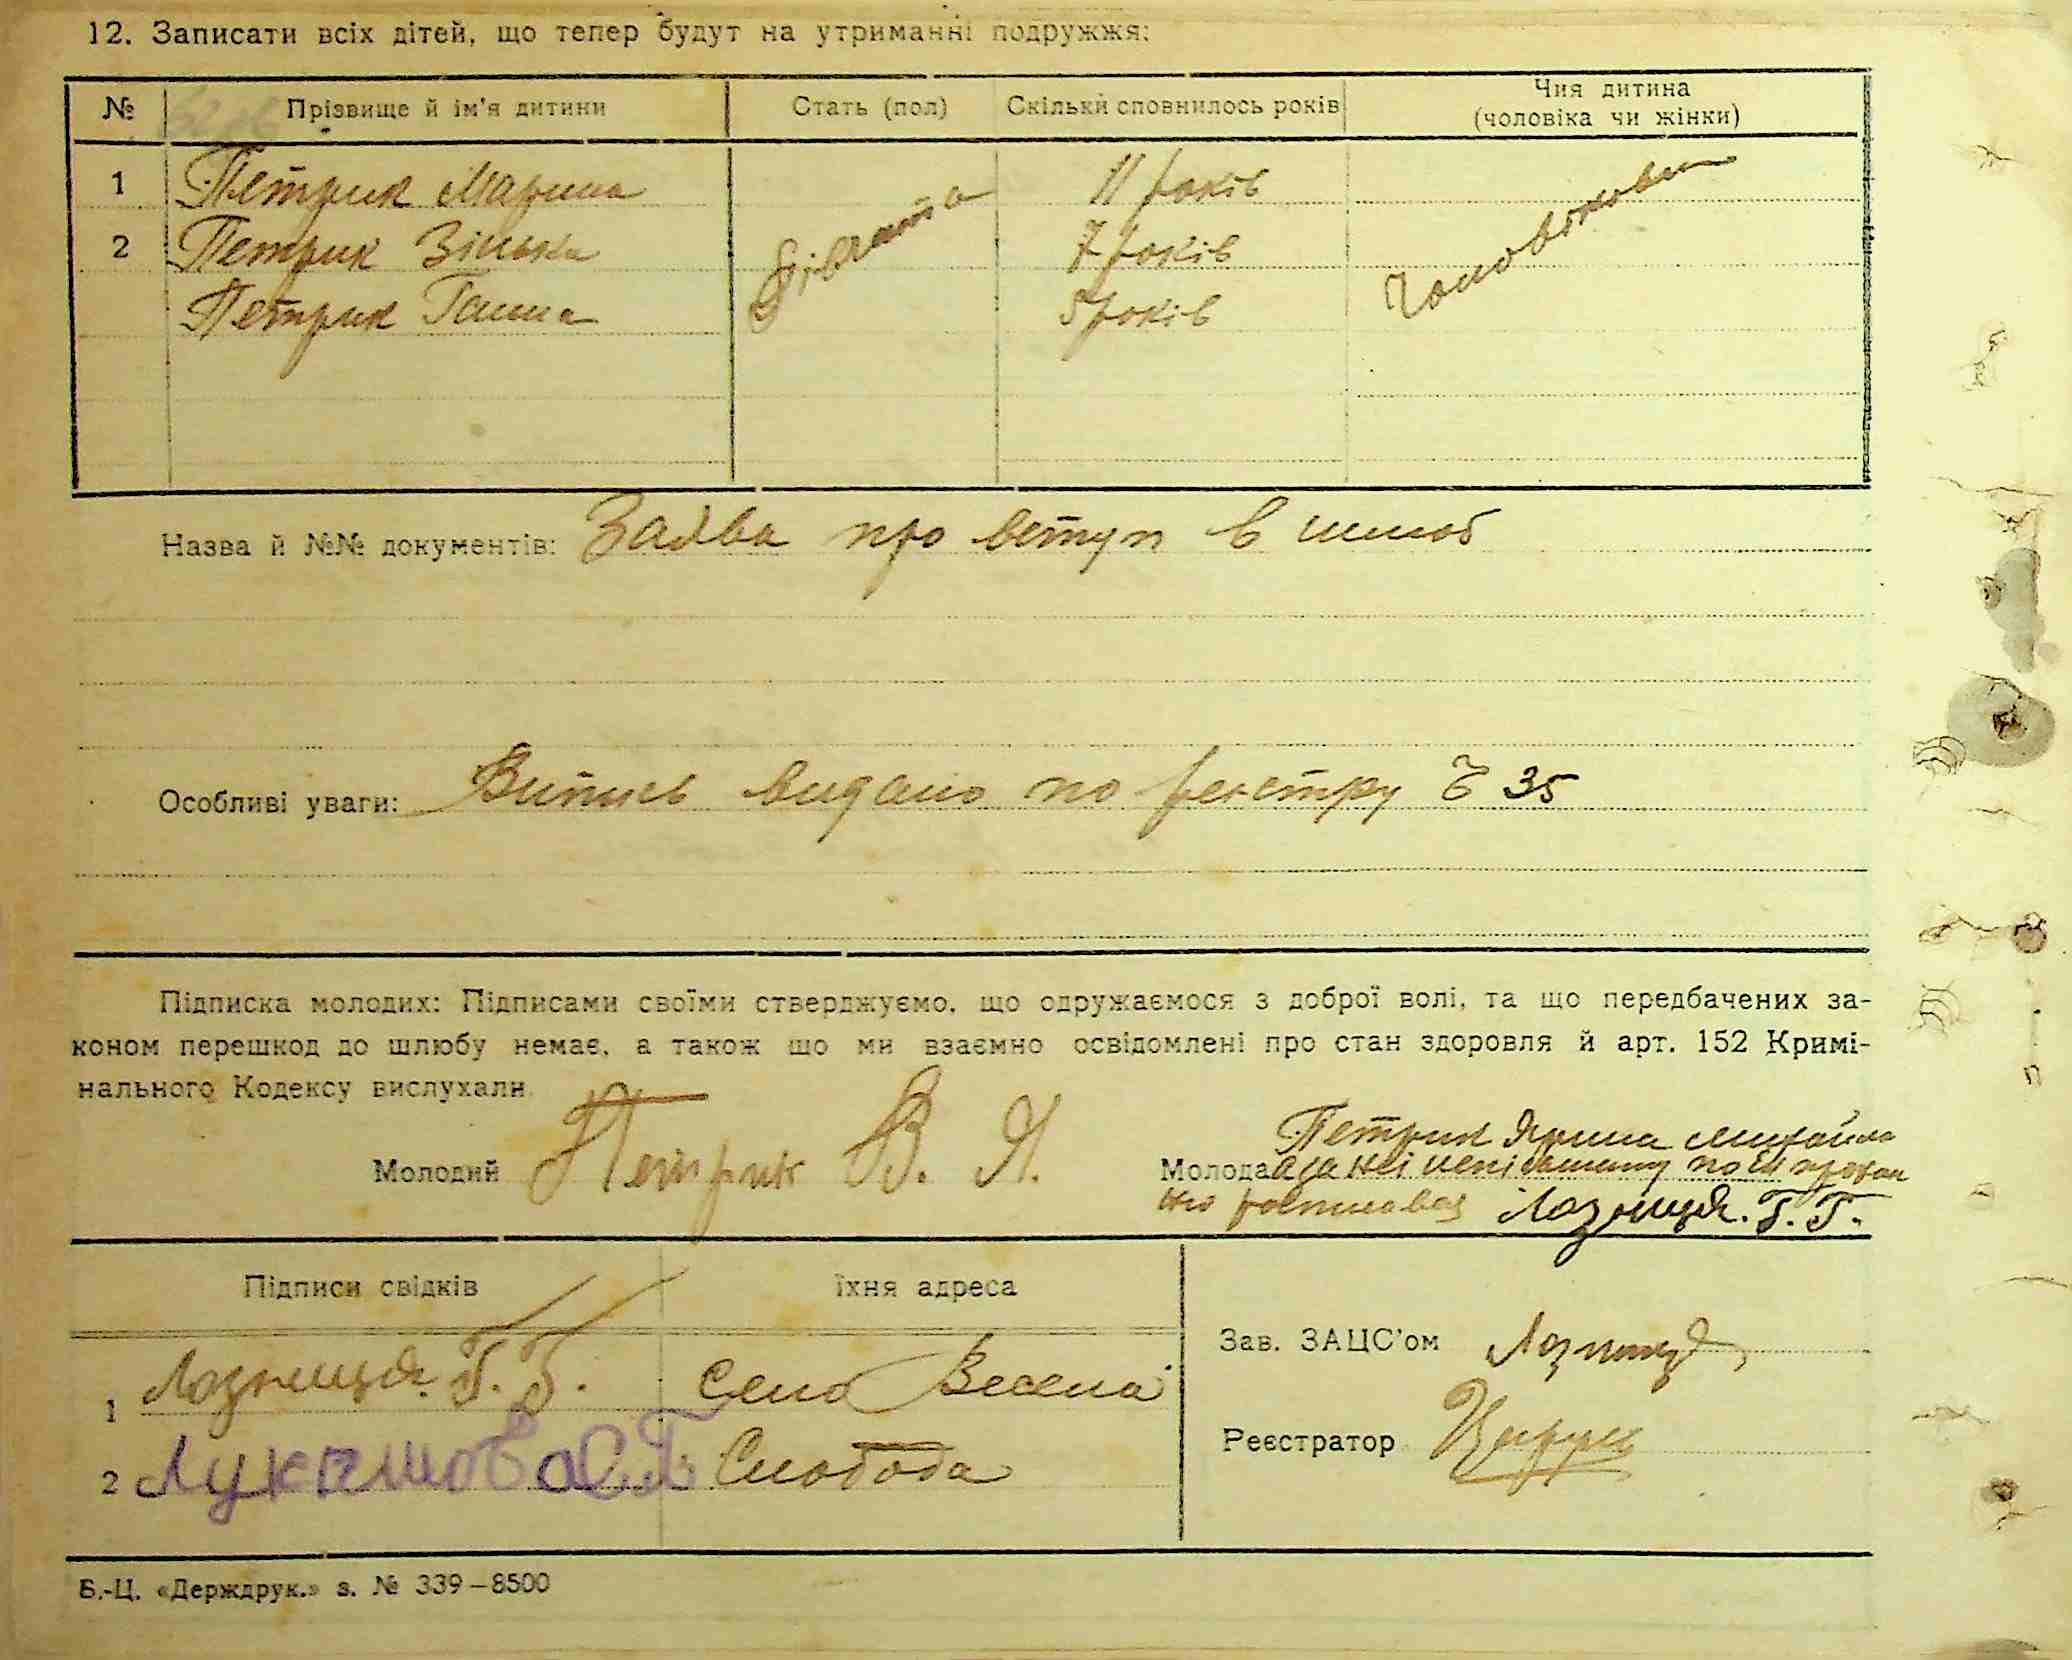 12. Записати всіх дітей, що тепер будут на утриманні подружжя:
№ Прізвище й ім'я дитини Стать (пол) Скільки сповнилось років Чия дитина (чоловіка чи жінки)
1 Петрик Марина дівчата 11 років Чоловікови
2 Петрик Зінька 7 років
Петрик Ганна 5 років
Назва й №№ документів: Заява про вступ в шлюб
Особливі уваги: Випись видано по реєстру Ч 35
Підписка молодих: Підписами своїми стверджуємо, що одружаємося з доброї волі, та що передбачених за-
коном перешкод до шлюбу немає, а також що ми взаємно освідомлені про стан здоровля й арт. 152 Кримі-
нального Кодексу вислухали.
Петрик Ярина Михайло
Молодий Петрик В. Я. Молода а за неї неписьмену по її прохан
ню росписавсь Лозниця. Г. Г.
Підписи свідків Їхня адреса
Зав. ЗАЦС'ом Лозниця
1 Лозниця. Г. Г. Село Весела
Реєстратор
2 Лукашова С. Слобода
Б.-Ц. «Держдрук.» з. № 339–8500